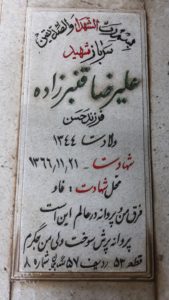 بسم رب الشهداء والصدیقین
سرباز شهید
علیرضا قنبرزاده
فرزند حسن
ولادت ۱۳۴۴
شهادت: ۱۳۶۶,۱۱,۲۱
محل شهادت: فاو
فرق من و پروانه در عالم این است
پروانه پرش سوخت ولی من جگرم
قطعه ۵۳ ردیف ۵۷ شماره ۸